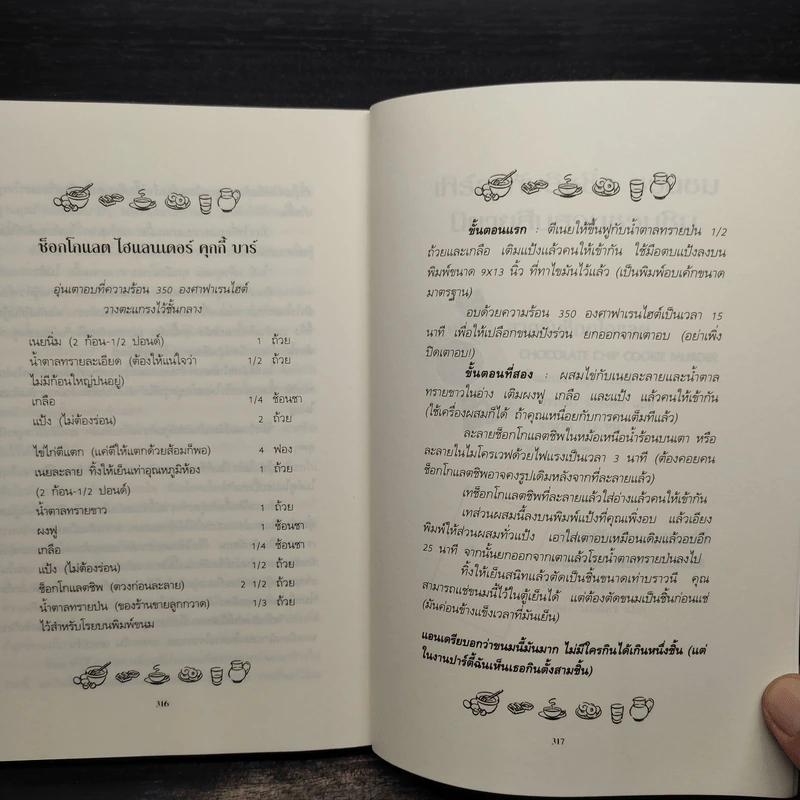 ช็อกโกแลต ไฮแลนเดอร์ คุกกี้ บาร์
อุ่นเตาอบที่ความร้อน 350 องศาฟาเรนไฮต์
วางตะแกรงไว้ชั้นกลาง
เนยนิ่ม (2 ก้อน-1/2 ปอนด์) 1 ถ้วย
น้ำตาลทรายละเอียด (ต้องให้แน่ใจว่า 1/2 ถ้วย
ไม่มีก้อนใหญ่ปนอยู่)
เกลือ 1/4 ช้อนชา
แป้ง (ไม่ต้องร่อน) 2 ถ้วย
ไข่ไก่ตีแตก (แค่ตีให้แตกด้วยส้อมก็พอ) 4 ฟอง
เนยละลาย ทิ้งให้เย็นเท่าอุณหภูมิห้อง 1 ถ้วย
(2 ก้อน-1/2 ปอนด์)
น้ำตาลทรายขาว 1 ถ้วย
ผงฟู 1 ช้อนชา
เกลือ 1/4 ช้อนชา
แป้ง (ไม่ต้องร่อน) 1/2 ถ้วย
ช็อกโกแลตชิพ (ตวงก่อนละลาย) 2 1/2 ถ้วย
น้ำตาลทรายป่น (ของร้านขายลูกกวาด) 1/3 ถ้วย
ไว้สำหรับโรยบนพิมพ์ขนม
316
ขั้นตอนแรก : ตีเนยให้ขึ้นฟูกับน้ำตาลทรายป่น 1/2
ถ้วยและเกลือ เติมแป้งแล้วคนให้เข้ากัน ใช้มือตบแป้งลงบน
พิมพ์ขนาด 9X13 นิ้ว ที่ทาไขมันไว้แล้ว (เป็นพิมพ์อบเค้กขนาด
มาตรฐาน)
อบด้วยความร้อน 350 องศาฟาเรนไฮต์เป็นเวลา 15
นาที เพื่อให้เปลือกขนมปังร่วน ยกออกจากเตาอบ (อย่าเพิ่ง
ปิดเตาอบ!)
ขั้นตอนที่สอง : ผสมไข่กับเนยละลายและน้ำตาล
ทรายขาวในอ่าง เติมผงฟู เกลือ และแป้ง แล้วคนให้เข้ากัน
(ใช้เครื่องผสมก็ได้ ถ้าคุณเหนื่อยกับการคนเต็มทีแล้ว)
ละลายช็อกโกแลตชิพในหม้อเหนือน้ำร้อนบนเตา หรือ
ละลายในไมโครเวฟด้วยไฟแรงเป็นเวลา 3 นาที (ต้องคอยคน
ช็อกโกแลตชิพอาจคงรูปเดิมหลังจากที่ละลายแล้ว)
เทช็อกโกแลตชิพที่ละลายแล้วใส่อ่างแล้วคนให้เข้ากัน
เทส่วนผสมนี้ลงบนพิมพ์แป้งที่คุณเพิ่งอบ แล้วเอียง
พิมพ์ให้ส่วนผสมทั่วแป้ง เอาใส่เตาอบเหมือนเดิมแล้วอบอีก
25 นาที จากนั้นยกออกจากเตาแล้วโรยน้ำตาลทรายป่นลงไป
ทิ้งให้เย็นสนิทแล้วตัดเป็นชิ้นขนาดเท่าบราวนี คุณ
สามารถแช่ขนมนี้ไว้ในตู้เย็นได้ แต่ต้องตัดขนมเป็นชิ้นก่อนแช่
(มันค่อนข้างแข็งเวลาที่มันเย็น)
แอนเดรียบอกว่าขนมนี้มันมาก ไม่มีใครกินได้เกินหนึ่งชิ้น (แต่
ในงานปาร์ตี้ฉันเห็นเธอกินตั้งสามชิ้น)
317